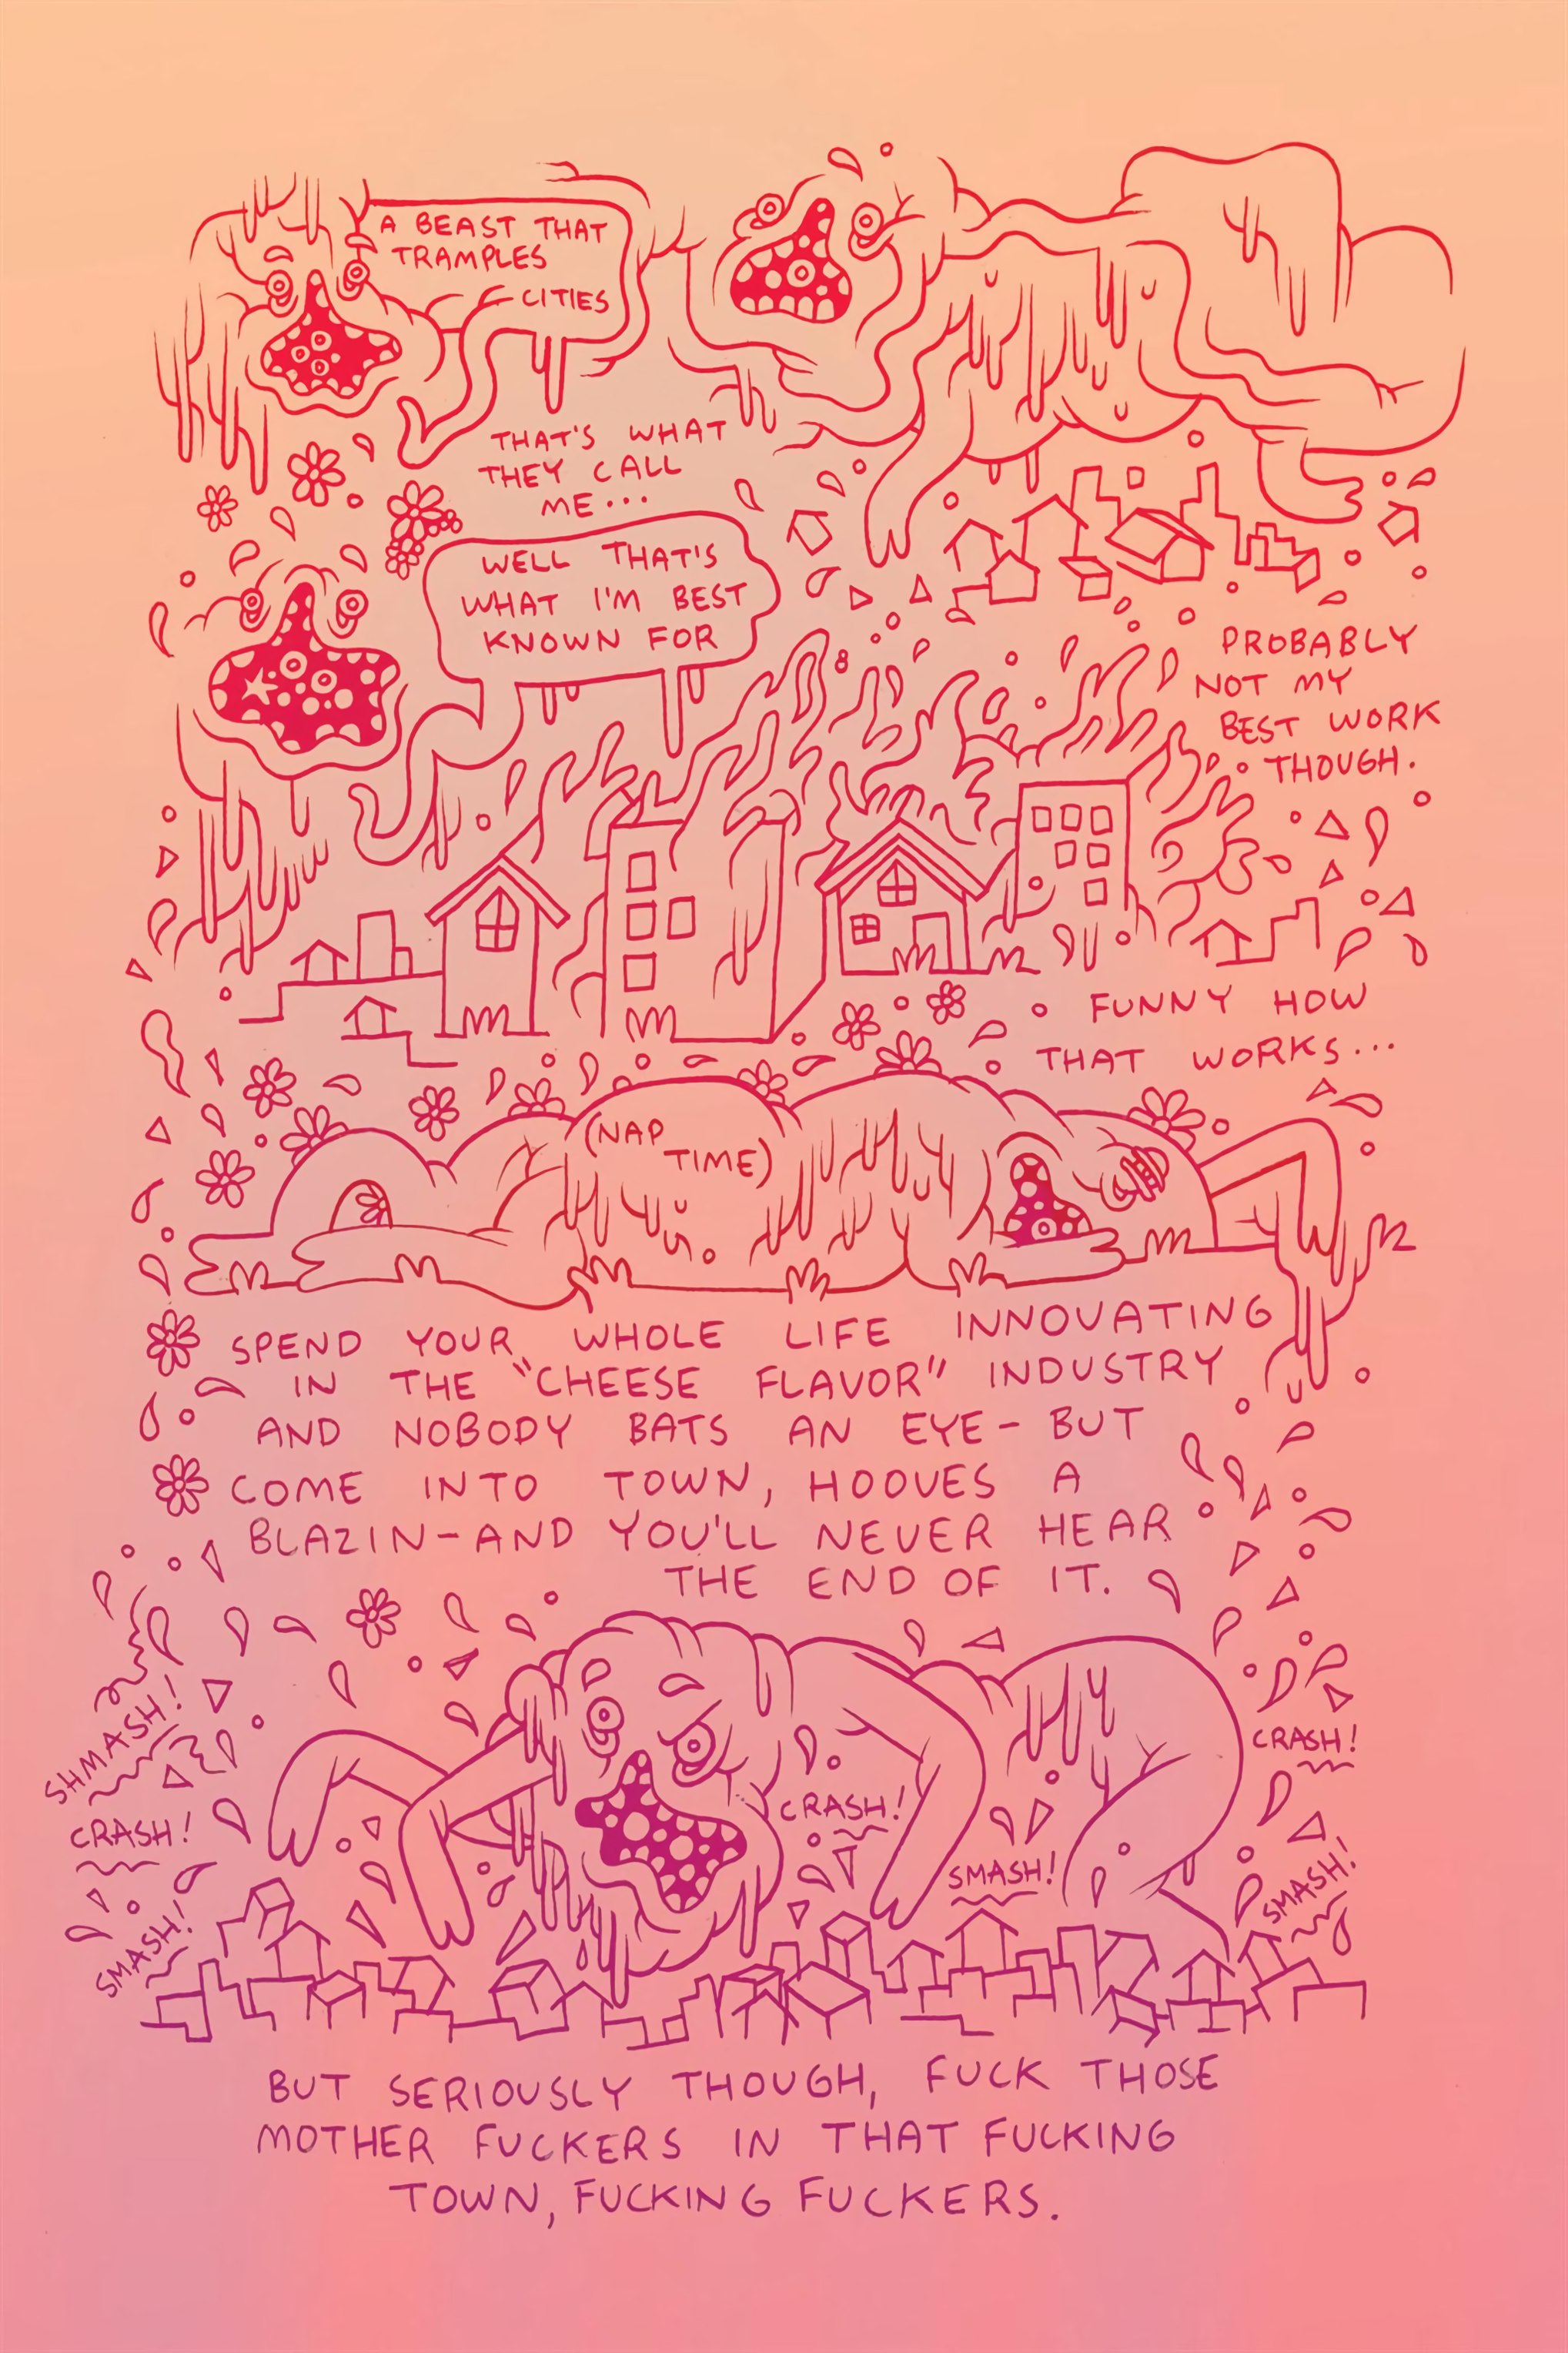 A BEAST THAT
TRAMPLES
CITIES
THAT'S WHAT
THEY CALL
ME...
WELL THAT'S
WHAT I'M BEST
KNOWN FOR
PROBABLY
NOT MY
BEST WORK
THOUGH.
FUNNY HOW
THAT WORKS...
(NAP
TIME)
SPEND YOUR WHOLE LIFE INNOVATING
IN THE "CHEESE FLAVOR" INDUSTRY
AND NOBODY BATS AN EYE- BUT
COME INTO TOWN, HOOVES A
BLAZIN-AND YOU'LL NEVER HEAR
THE END OF IT.
SHMASH!
CRASH!
SMASH!
CRASH!
SMASH!
CRASH!
SMASH!
BUT SERIOUSLY THOUGH, FUCK THOSE
MOTHER FUCKERS IN THAT FUCKING
TOWN, FUCKING FUCKERS.